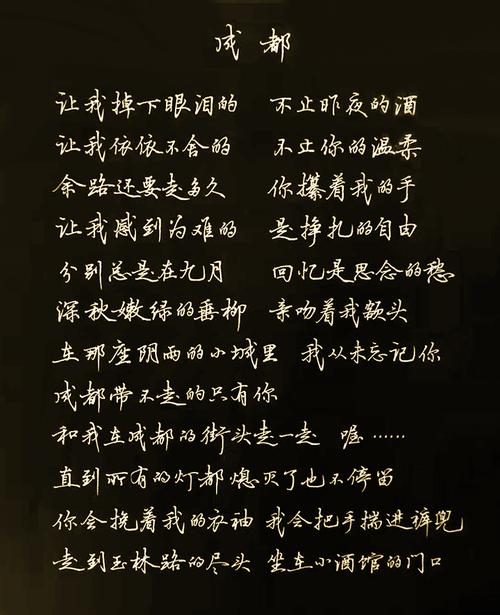 成都
让我掉下眼泪的 不止昨夜的酒
让我依依不舍的 不止你的温柔
余路还要走多久 你攥着我的手
让我感到为难的 是挣扎的自由
分别总是在九月 回忆是思念的愁
深秋嫩绿的垂柳 亲吻着我额头
在那座阴雨的小城里 我从未忘记你
成都带不走的只有你
和我在成都的街头走一走 喔……
直到所有的灯都熄灭了也不停留
你会挽着我的衣袖 我会把手揣进裤兜
走到玉林路的尽头 坐在小酒馆的门口